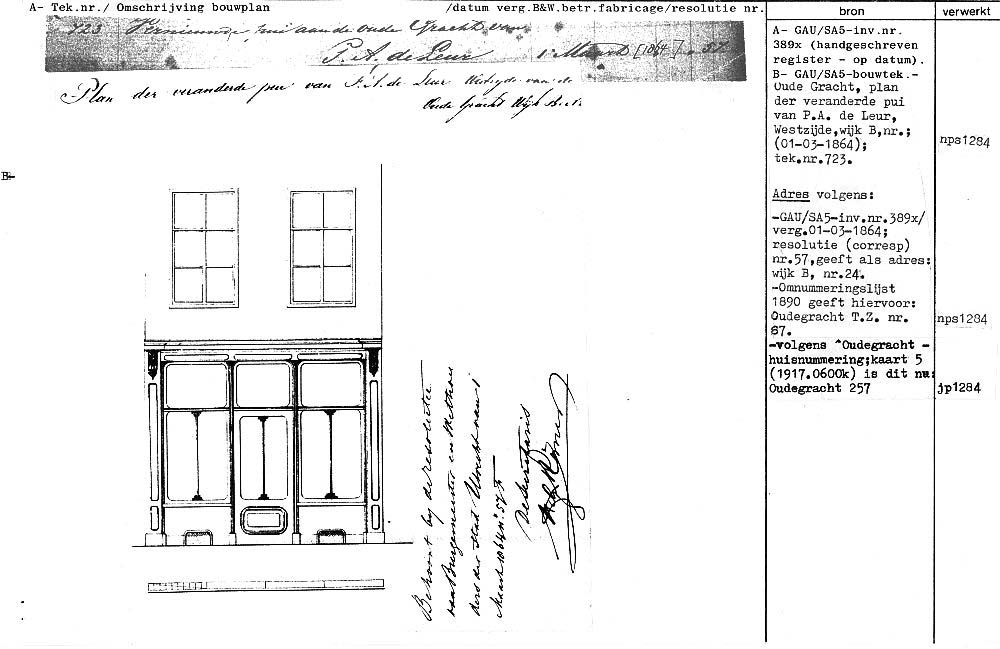 A- Tek.nr./ Omschrijving bouwplan /datum verg.B&W.betr.fabricage/resolutie nr.
bron
verwerkt
723 Vernieuwde pui aan de oude Gracht van
P. A. de Leur 1 Maart [1864] 57
Plan der veranderde pui van P. A. de Leur Westzyde van de
Oude Gracht Wyk B. N.
B-
Behoort by de resolutie
van Burgemeester en Wethou
ders der Stad Utrecht van 1
Maart 1864 N. 57
De Secretaris
A- GAU/SA5-inv.nr.
389x (handgeschreven
register - op datum).
B- GAU/SA5-bouwtek.-
Oude Gracht, plan
der veranderde pui
van P.A. de Leur,
Westzijde,wijk B,nr.;
(01-03-1864);
tek.nr.723.
nps1284
Adres volgens:
-GAU/SA5-inv.nr.389x/
verg.01-03-1864;
resolutie (corresp)
nr.57,geeft als adres:
wijk B, nr.24.
-Omnummeringslijst
1890 geeft hiervoor:
Oudegracht T.Z. nr.
87.
nps1284
-volgens "Oudegracht -
huisnummering;kaart 5
(1917.0600k) is dit nu:
Oudegracht 257
jp1284